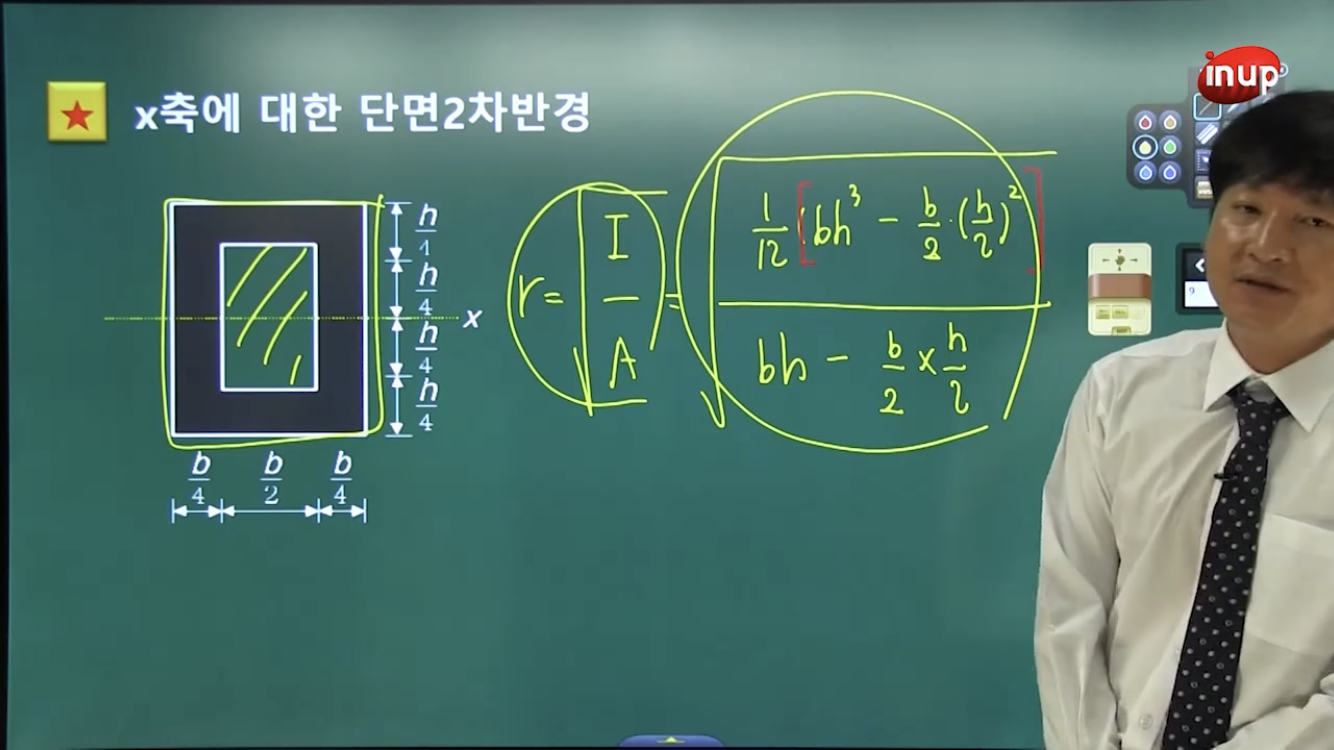 inup
x축에 대한 단면2차반경
h/4
h/4
h/4
h/4
x
b/4 b/2 b/4
r = √(I/A) = √((1/12 [bh³ - b/2·(h/2)²]) / (bh - b/2 × h/2))
9